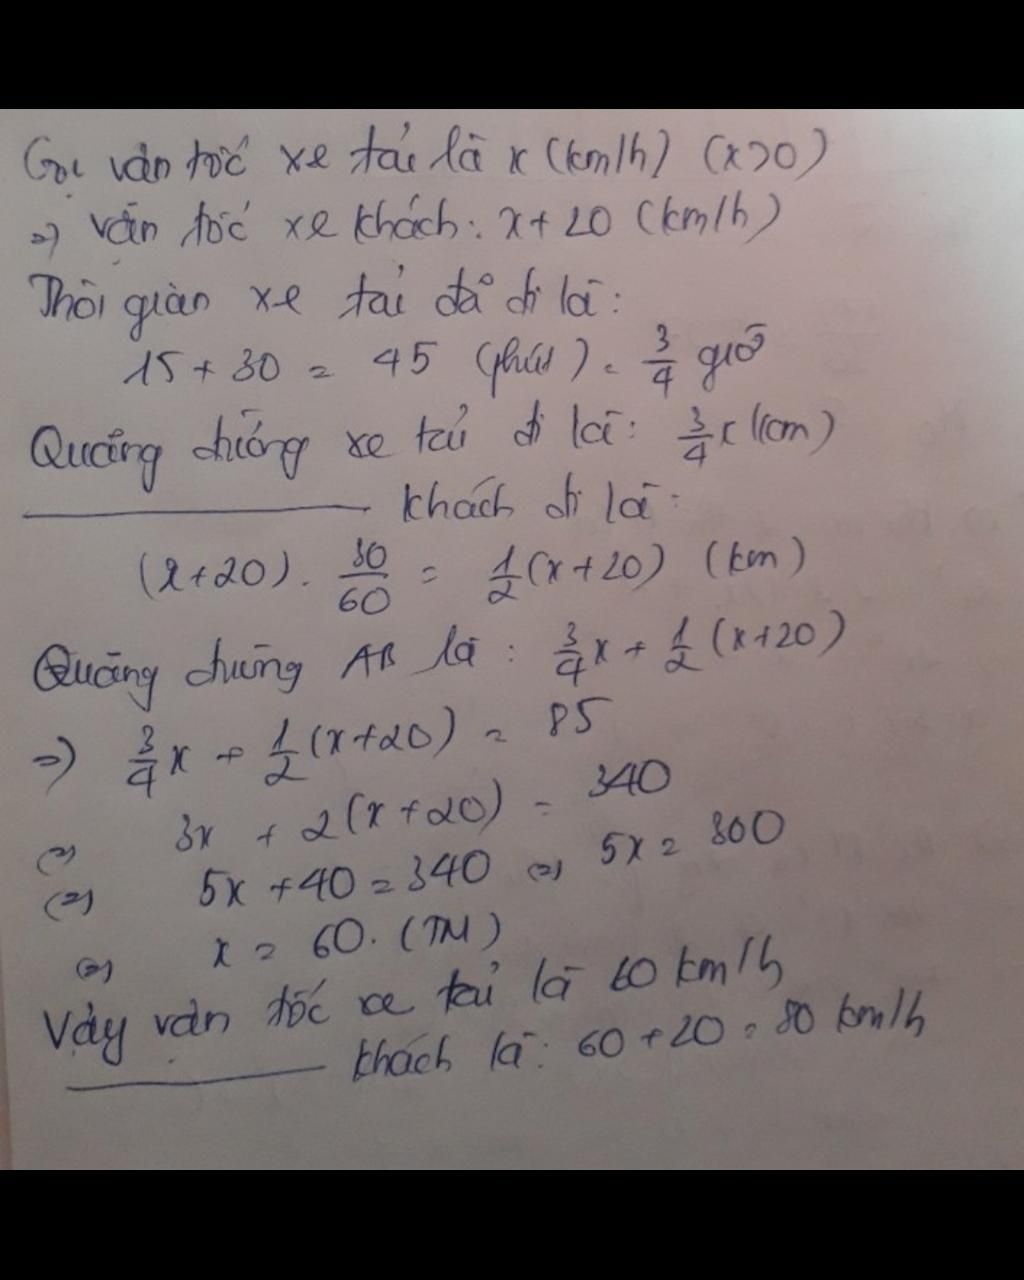 Gọi vận tốc xe tải là x (km/h) (x>0)
=> vận tốc xe khách: x+20 (km/h)
Thời gian xe tải đã đi là:
15 + 30 = 45 (phút) = 3/4 giờ
Quãng đường xe tải đi là: 3/4 x (km)
——————— khách đi là:
(x+20). 30/60 = 1/2 (x+20) (km)
Quãng đường AB là: 3/4 x + 1/2 (x+20)
=> 3/4 x + 1/2 (x+20) = 85
<=> 3x + 2(x+20) = 340
<=> 5x +40 = 340 <=> 5x = 300
<=> x = 60. (TM)
Vậy vận tốc xe tải là 60 km/h
——————— khách là: 60+20 = 80 km/h